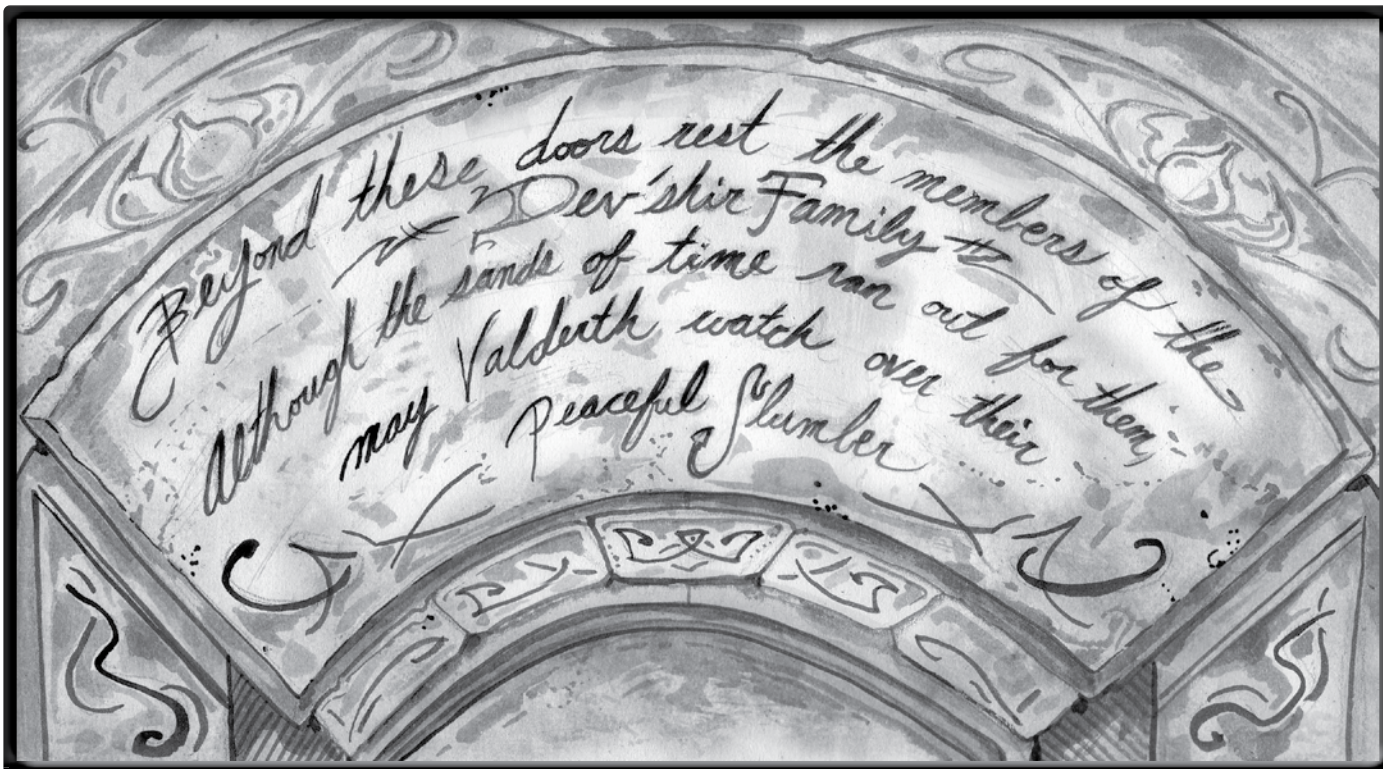 Beyond these doors rest the members of the
Dev'shir Family
Although the sands of time ran out for them,
may Valderth watch over their
Peaceful Slumber